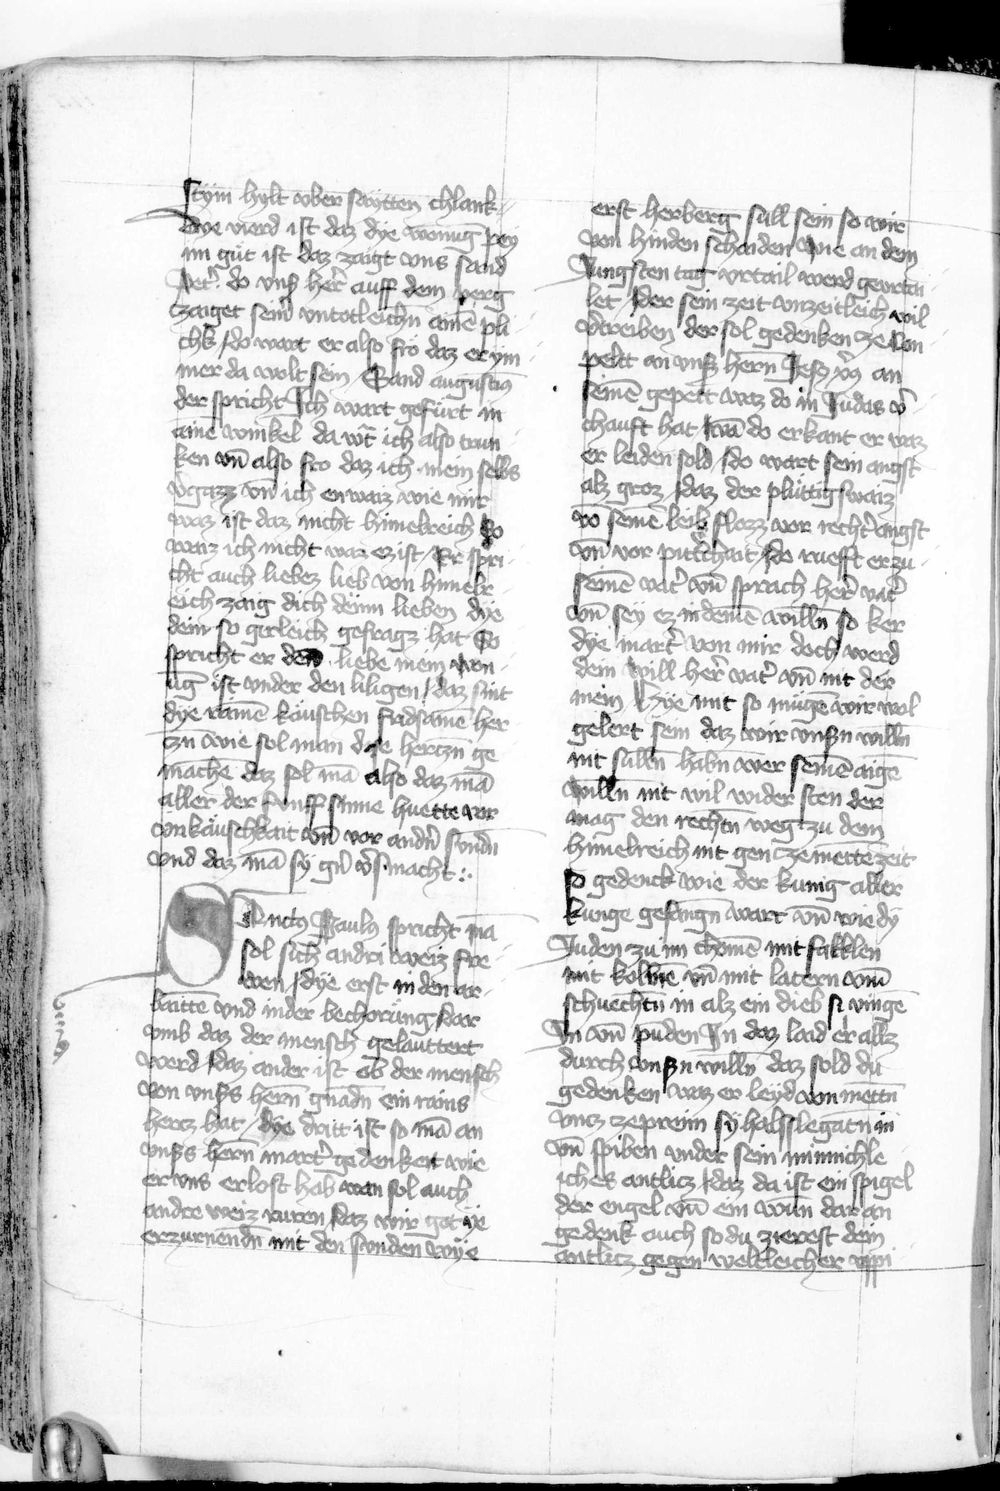 stym hylt vber swytten chlank
Dye vierd ist daz dye wonūg pey
im gůt ist daz zaigt vns sand
Pet͛ do vnß her͛ auff dem perg
czaiget sein vntotleichn̄ ainē pli
chk / do wart er also fro daz er ym
mer da wolt sein / Sand augustin9
der spricht Ich wart gefürt in
aine winkel da wt͛ ich also trun
ken vn̄ also fro daz ich mein selbs
v͛gazz vn̄ ich enwaiz wie mir
waz ist daz nicht himelreich So
waiz ich nicht waz ez ist / Er spri
cht auch liebez lieb von himelr
eich zaig dich deinn lieben dye
dein so gerleich gefragz hat So
spricht er den liebe mein won
ūg ist vnder den liligen / daz sint
dye rainē käuschen fridsamē her
czn̄ wie sol man dye herczn̄ ge
mache daz sol mā also daz mā
aller der fünff sinne huette vor
vnkäuschkait vn̄ vor andn̄ sundn̄
vnd daz mā sy gn̄ v͛smacht :.
Sanctus Paulus spricht mā
sol sich andri weiz fre
wen / dye erst in den ar
baitte vnd in der bechorūng / dar
vmb daz der mensch gelauttert
werd / daz ander ist ob der mensch
von vnßs hern̄ gnadn̄ ein rains
hercz hat / dye dritt ist so mā an
vnßs hern̄ mart͛ gedenkent wie
er vns erlost hab wan sol auch
andre weiz turen / daz wir got ye
erzurnendn̄ mit den sunden wye
erst herberg sull sein so wir
von hinden schaiden wie an dem
Jungsten tag vrtail werd gevrtai
let / der sein zeit vnzeitleich wil
v͛treiben der sol gedenken ze Con
peltt an vnß hern̄ Jesu xp̄ an
seinē gepett waz do in Judas v͛
chauft hat wā do erkant er waz
er leiden sold / do wart sein angst
alz groz / daz der plüttig swaiz
vō seinē leib flozz vor recht͛ angst
vn̄ vor pitt͛chait / do rueft er zu
seinē vat͛ vn̄ sprach her͛ vat͛
vn̄ sey ez in deinē willn̄ so ker
dye mart͛ von mir doch werd
dein will her͛ vat͛ vn̄ nit der
mein Hye mit so mügē wir wol
gelert sein daz wir vnßn willn̄
nit sulln̄ habn̄ wer seinē aigē
willn̄ nit wil wider sten der
mag den rechtn̄ weg zu dem
himelreich nit gen cze mettē zeit
so gedenck wie der kunig aller
kunge gefangn̄ wart vn̄ wie dy
Juden zu im chomē mit fakklen
mit kolbē vn̄ mit latern vnd
schuechtn̄ in alz ein dieb si vingē
In vn̄ punden In daz laid er allz
durch vnßn willn̄ daz sold du
gedenken waz er leyd von mettn̄
vncz ze preim sy halsslegatn̄ in
vn̄ spiben vnder sein minnichle
iches antlicz / daz da ist ein spigel
der engel vn̄ ein wun dar an
gedenk auch so du zierest dein
antlicz gegen weltleicher vppi